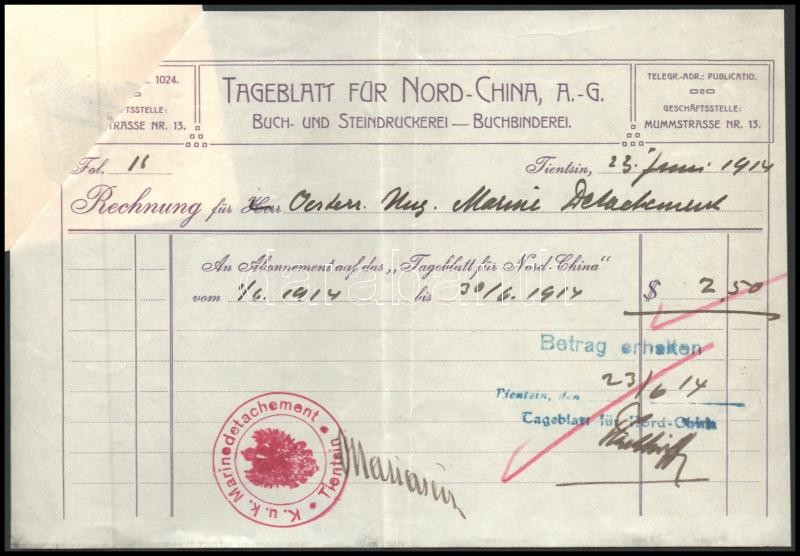 1024.
TAGEBLATT FÜR NORD-CHINA, A.-G.
BUCH- UND STEINDRUCKEREI — BUCHBINDEREI.
TELEGR.-ADR.: PUBLICATIO.
GESCHÄFTSSTELLE:
MUMMSTRASSE NR. 13.
FTSSTELLE:
TRASSE NR. 13.
Fol. 16 Tientsin, 23. Juni 1914
Rechnung für Herr Oesterr. Ung. Marine Detachement
An Abonnement auf das „Tageblatt für Nord-China"
vom 1/6. 1914 bis 30/6. 1914 $ 2.50
Betrag erhalten
23/6 14
Tientsin, den
Tageblatt für Nord-China
K. u. k. Marinedetachement * Tientsin *
darabanth